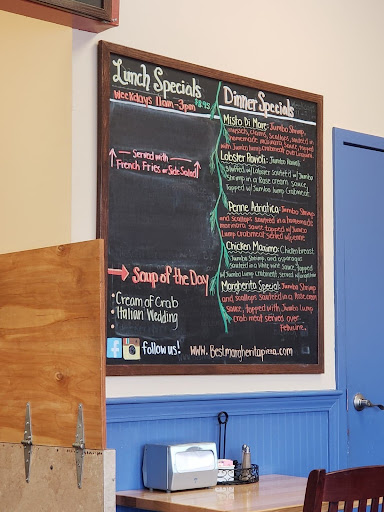 Lunch Specials
Weekdays 11am-3pm $8.95
Served with
French Fries or Side Salad
Soup of the Day
Cream of Crab
Italian Wedding
follow us!
www.Bestmargheritapizza.com
Dinner Specials
Misto Di Mare: Jumbo Shrimp,
mussels, clams, scallops, sauteed in
homemade marinara sauce, topped
with Jumbo lump crabmeat over linguini
Lobster Ravioli: Jumbo Ravioli
stuffed w/ Lobster sauteed w/ Jumbo
Shrimp in a Rose cream sauce,
topped w/ Jumbo lump crabmeat.
Penne Adriatica: Jumbo Shrimp
and scallops sauteed in a homemade
marinara sauce topped w/ Jumbo
Lump Crabmeat served w/ penne
Chicken Maximo: Chicken breast
Jumbo Shrimp, and asparagus
sauteed in a white wine sauce, topped
w/ Jumbo Lump Crabmeat served w/
Margherita Special: Jumbo Shrimp
and scallops sauteed in a Rose cream
sauce, topped with Jumbo Lump
crab meat served over
Fettucine.